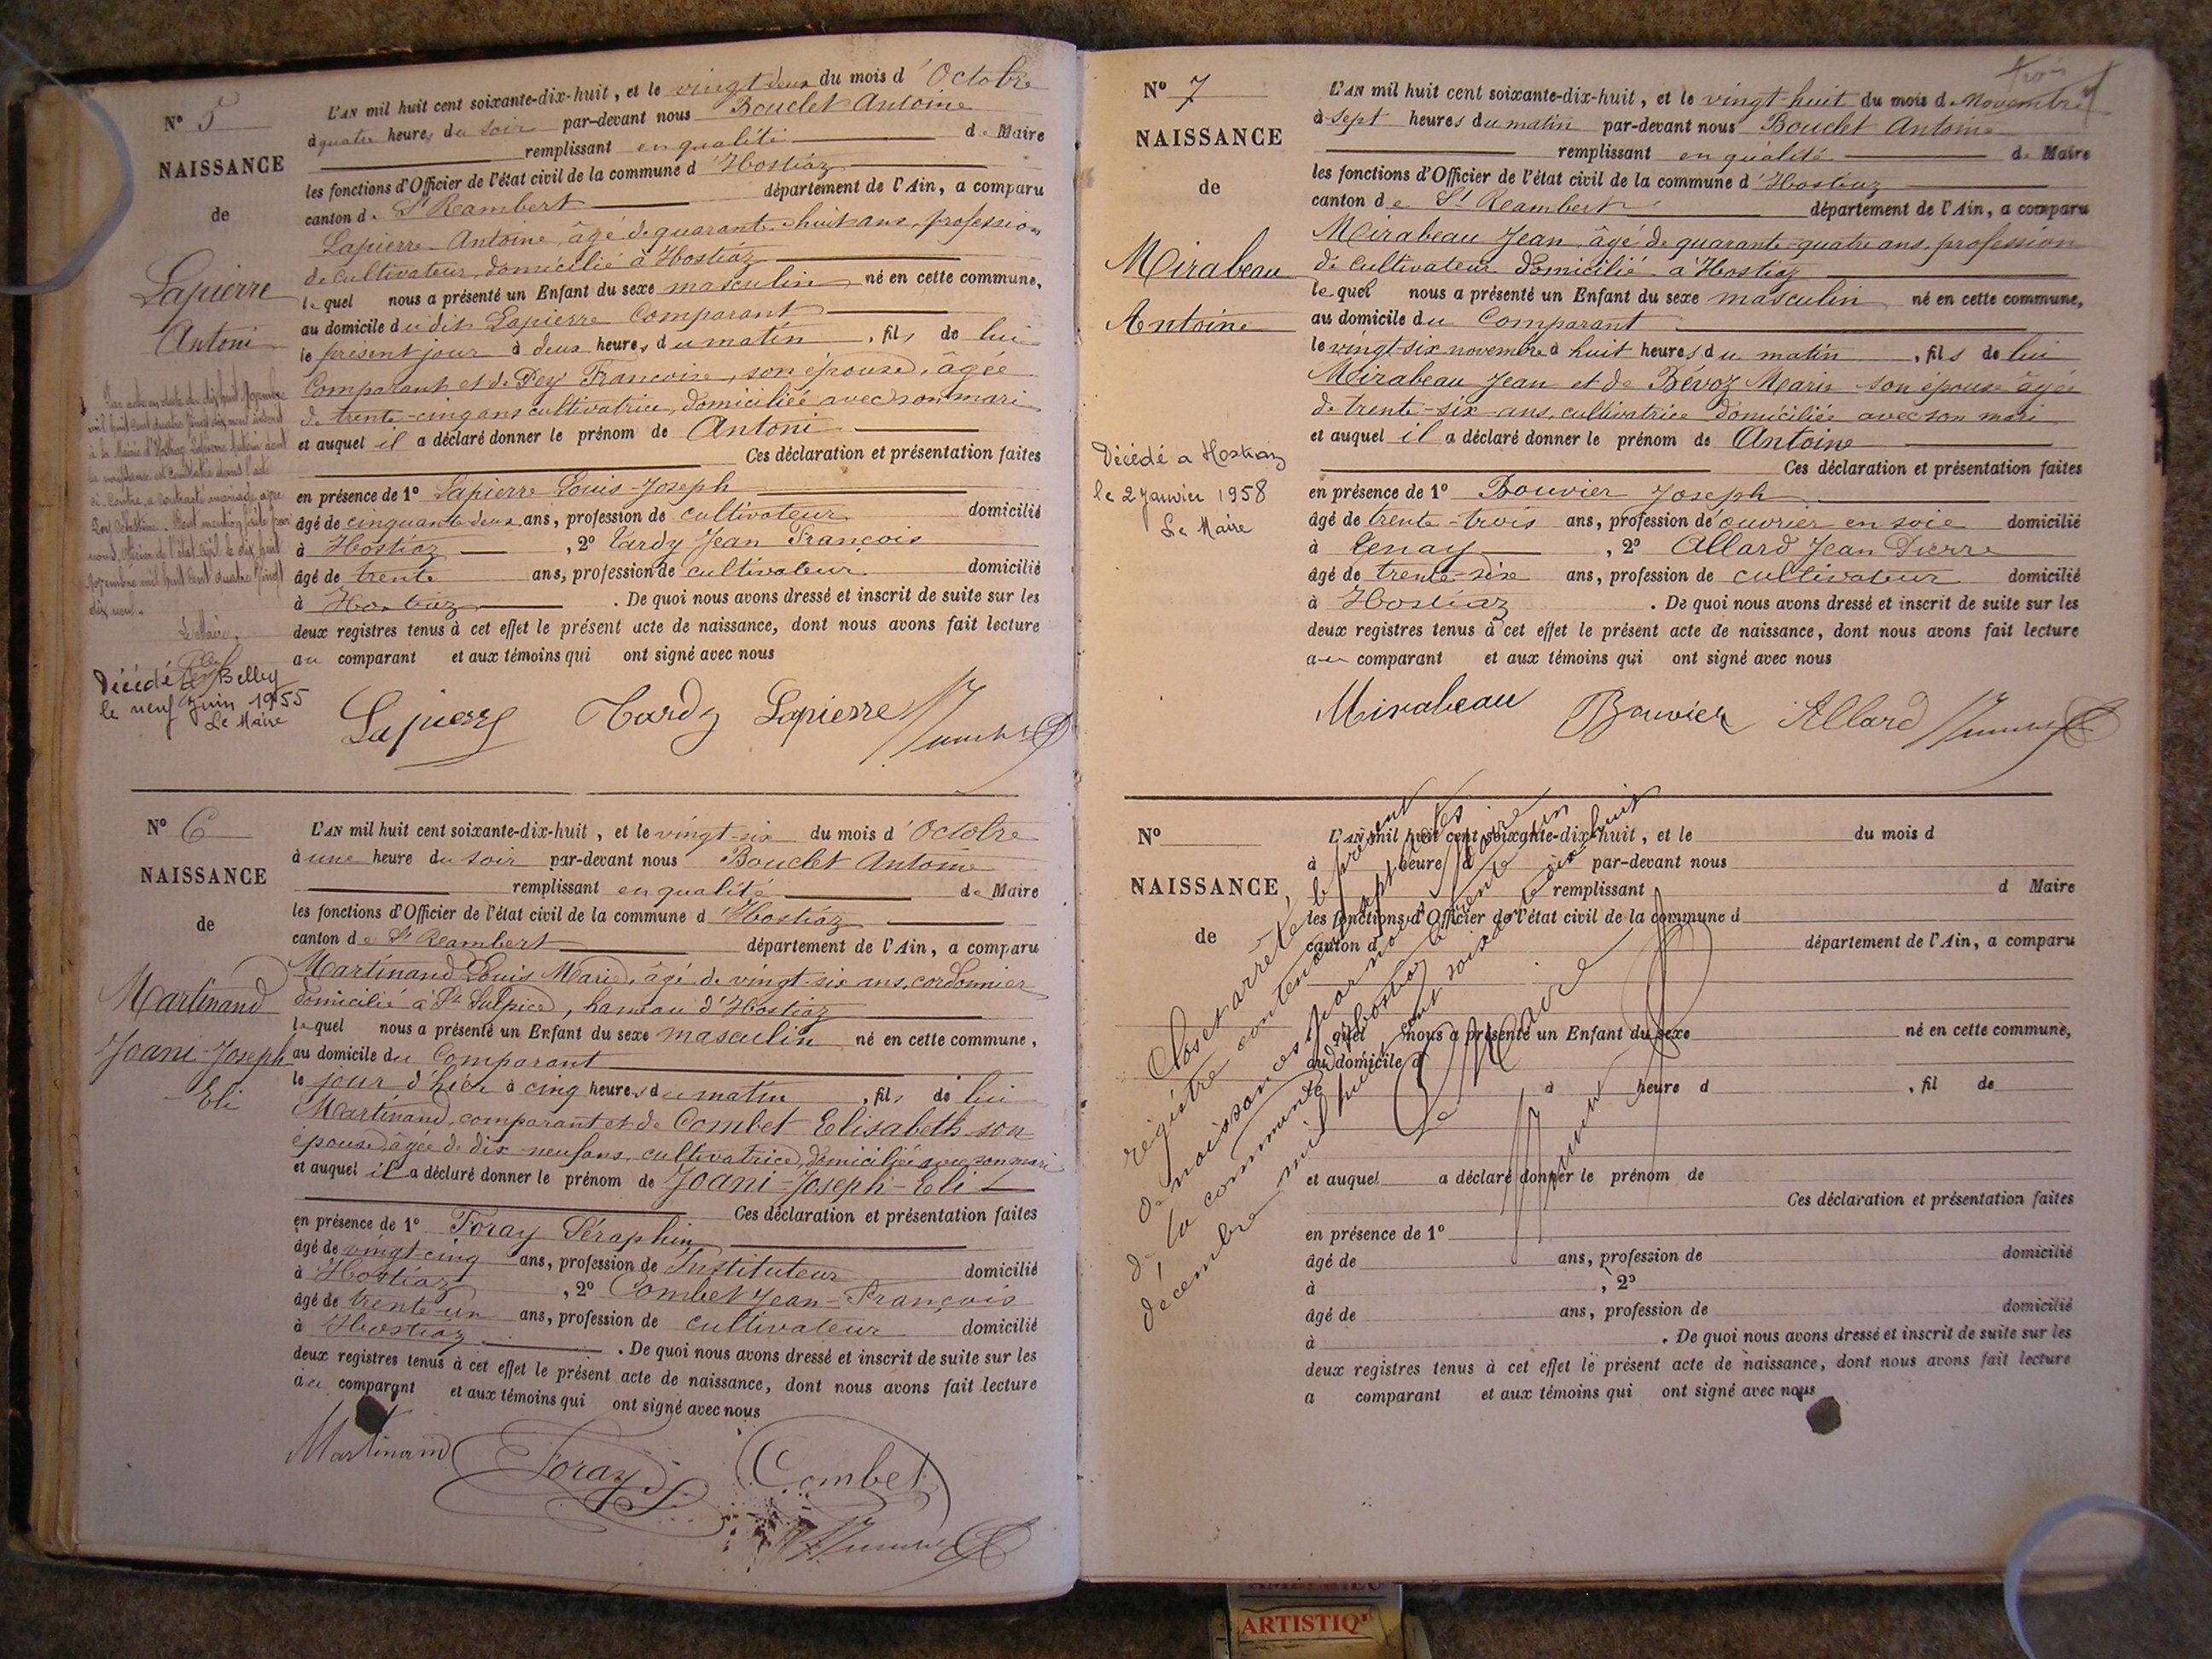 N° 5
NAISSANCE
de
Lapierre
Antoni
L'AN mil huit cent soixante-dix-huit, et le vingt deux du mois d'Octobre
à quatre heures du soir par-devant nous Bouclet Antoine
remplissant en qualité de Maire
les fonctions d'Officier de l'état civil de la commune d'Hostiaz
canton de St Rambert département de l'Ain, a comparu
Lapierre Antoine, âgé de quarante-huit ans, profession
de cultivateur, domicilié à Hostiaz
lequel nous a présenté un Enfant du sexe masculin né en cette commune,
au domicile du dit Lapierre Comparant
le présent jour à deux heures du matin, fils de lui
Comparant et de Pey Françoise, son épouse, âgée
de trente-cinq ans cultivatrice, domiciliée avec son mari
et auquel il a déclaré donner le prénom de Antoni
Ces déclaration et présentation faites
en présence de 1° Lapierre Louis-Joseph
âgé de cinquante deux ans, profession de cultivateur domicilié
à Hostiaz, 2° Tardy Jean François
âgé de trente ans, profession de cultivateur domicilié
à Hostiaz. De quoi nous avons dressé et inscrit de suite sur les
deux registres tenus à cet effet le présent acte de naissance, dont nous avons fait lecture
au comparant et aux témoins qui ont signé avec nous
Lapierre Tardy Lapierre
Le Maire,
Décédé à Belley
le neuf Juin 1955
Le Maire
N° 6
NAISSANCE
de
Martinand
Joani-Joseph
Eli
L'AN mil huit cent soixante-dix-huit, et le vingt-six du mois d'Octobre
à une heure du soir par-devant nous Bouclet Antoine
remplissant en qualité de Maire
les fonctions d'Officier de l'état civil de la commune d'Hostiaz
canton de St Rambert département de l'Ain, a comparu
Martinand Louis Marie, âgé de vingt-six ans, cordonnier
domicilié à St Sulpice, hameau d'Hostiaz
lequel nous a présenté un Enfant du sexe masculin né en cette commune,
au domicile du Comparant
le jour d'hier à cinq heures du matin, fils de lui
Martinand, comparant et de Combet Elisabeth son
épouse, âgée de dix neuf ans, cultivatrice, domiciliée avec son mari
et auquel il a déclaré donner le prénom de Joani-Joseph-Eli
Ces déclaration et présentation faites
en présence de 1° Foray Séraphin
âgé de vingt-cinq ans, profession de Instituteur domicilié
à Hostiaz, 2° Combet Jean-François
âgé de trente-un ans, profession de cultivateur domicilié
à Hostiaz. De quoi nous avons dressé et inscrit de suite sur les
deux registres tenus à cet effet le présent acte de naissance, dont nous avons fait lecture
au comparant et aux témoins qui ont signé avec nous
Martinand Foray Combet
N° 7
NAISSANCE
de
Mirabeau
Antoine
Décédé à Hostiaz
le 2 Janvier 1958
Le Maire
L'AN mil huit cent soixante-dix-huit, et le vingt-huit du mois de Novembre
à sept heures du matin par-devant nous Bouclet Antoine
remplissant en qualité de Maire
les fonctions d'Officier de l'état civil de la commune d'Hostiaz
canton de St Rambert département de l'Ain, a comparu
Mirabeau Jean, âgé de quarante-quatre ans, profession
de cultivateur domicilié à Hostiaz
lequel nous a présenté un Enfant du sexe masculin né en cette commune,
au domicile du Comparant
le vingt-six novembre à huit heures du matin, fils de lui
Mirabeau Jean et de Bévoz Marie son épouse âgée
de trente-six ans, cultivatrice domiciliée avec son mari
et auquel il a déclaré donner le prénom de Antoine
Ces déclaration et présentation faites
en présence de 1° Bouvier Joseph
âgé de trente-trois ans, profession de ouvrier en soie domicilié
à Tenay, 2° Allard Jean Pierre
âgé de trente-six ans, profession de cultivateur domicilié
à Hostiaz. De quoi nous avons dressé et inscrit de suite sur les
deux registres tenus à cet effet le présent acte de naissance, dont nous avons fait lecture
au comparant et aux témoins qui ont signé avec nous
Mirabeau Bouvier Allard
N°
NAISSANCE
de
L'AN mil huit cent soixante-dix-huit, et le du mois d
à heure d par-devant nous
remplissant d Maire
les fonctions d'Officier de l'état civil de la commune d
canton d département de l'Ain, a comparu
quel nous a présenté un Enfant du sexe né en cette commune,
au domicile d
le à heure d, fil de
et auquel a déclaré donner le prénom de
Ces déclaration et présentation faites
en présence de 1°
âgé de ans, profession de domicilié
à, 2°
âgé de ans, profession de domicilié
à. De quoi nous avons dressé et inscrit de suite sur les
deux registres tenus à cet effet le présent acte de naissance, dont nous avons fait lecture
a comparant et aux témoins qui ont signé avec nous
Clos et arrêté, le présent
registre contenant sept actes
de naissances par nous Maire
de la commune d'Hostiaz le trente un
décembre mil huit cent soixante dix huit
Le Maire
ARTISTIQ